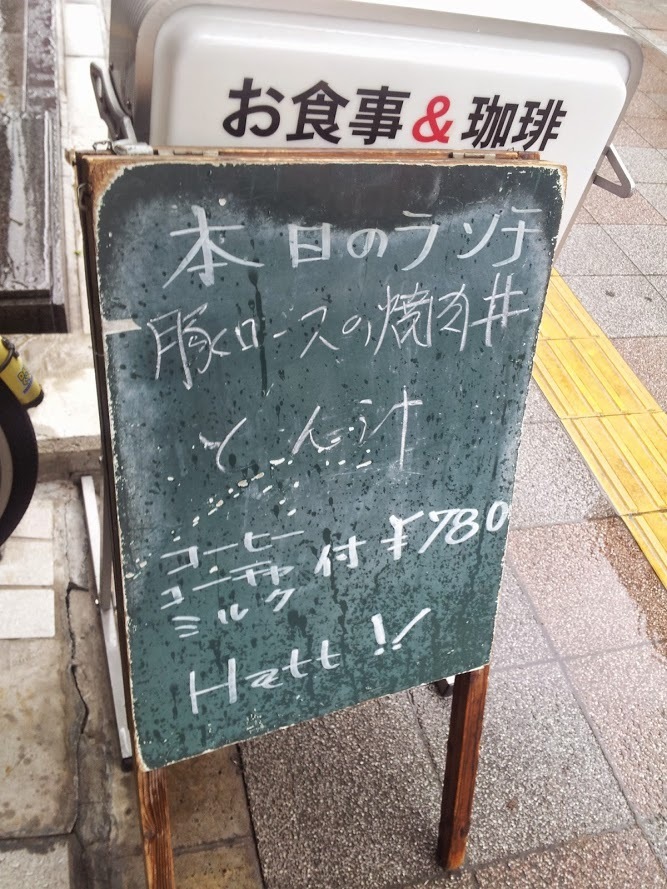 お食事&珈琲
本日のランチ
豚ロースの焼肉丼
とん汁
コーヒー
コーチャ 付 ¥780
ミルク
Hatt !!